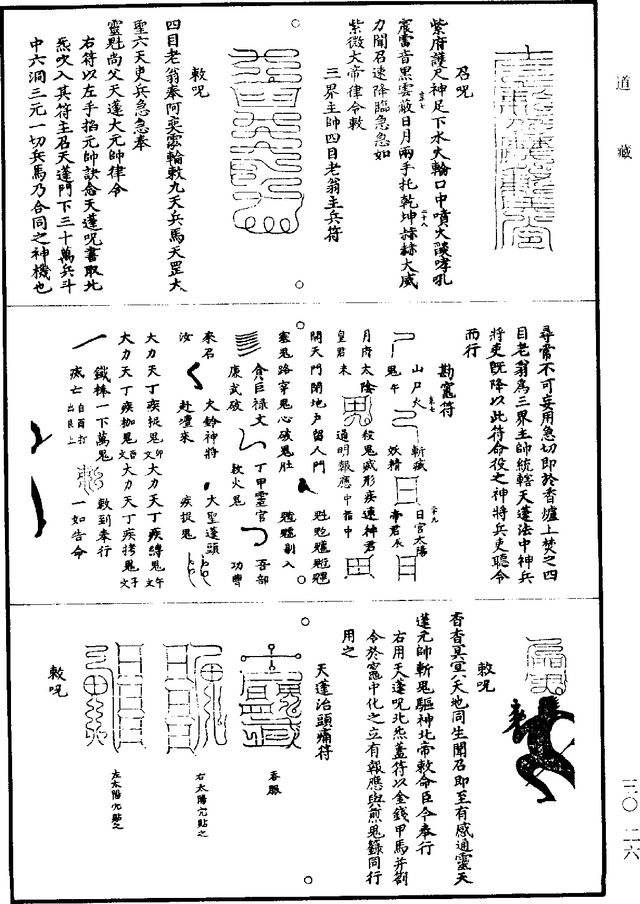 道藏
召呪
紫府護尺神足下水火輪口中噴火談哮吼
震雷音黑雲蔽日月兩手托乾坤赫赫大威
力聞召速降臨急急如
紫微大帝律令敕
三界主帥四目老翁主兵符
敕呪
四目老翁奉阿奕雲輪敕九天兵馬天罡大
聖六天吏兵急急奉
靈魁尚父天蓬大元帥律令
右符以左手掐元帥訣念天蓬呪書取北
炁吹入其符主召天蓬門下三十萬兵斗
中六洞三元一切兵馬乃合同之神機也
尋常不可妄用急切即於香爐上焚之四
目老翁為三界主帥統轄天蓬法中神兵
將吏既降以此符命役之神將兵吏聽令
而行
勘寃符
山尸火
斬䘒
日宮太陽
鬼午
妖精
帝君辰
月府太陰
殺鬼滅形疾速神君
皇君未
道明報應中指中
開天門閉地戶留人門
塞鬼路穿鬼心破鬼肚
貪巨祿文
丁甲靈官
吾部
廉武破
敕火鬼
功曹
來召
火鈴神將
大聖蓬頭
汝
赴壇來
疾捉鬼
大力天丁疾捉鬼
大力天丁疾縛鬼
大力天丁疾枷鬼
大力天丁疾拷鬼
鐵棒一下萬鬼
敕到奉行
滅亡
一如告命
敕呪
杳杳冥冥天地同生聞召即至有感通靈天
蓬元帥斬鬼驅神北帝敕命臣今奉行
右用天蓬呪北炁蓋符以金錢甲馬并劄
令於寃中化之立有報應與煎鬼籙同行
用之
天蓬治頭痛符
吞服
右太陽穴點之
左太陽穴點之
敕呪
三〇 二六